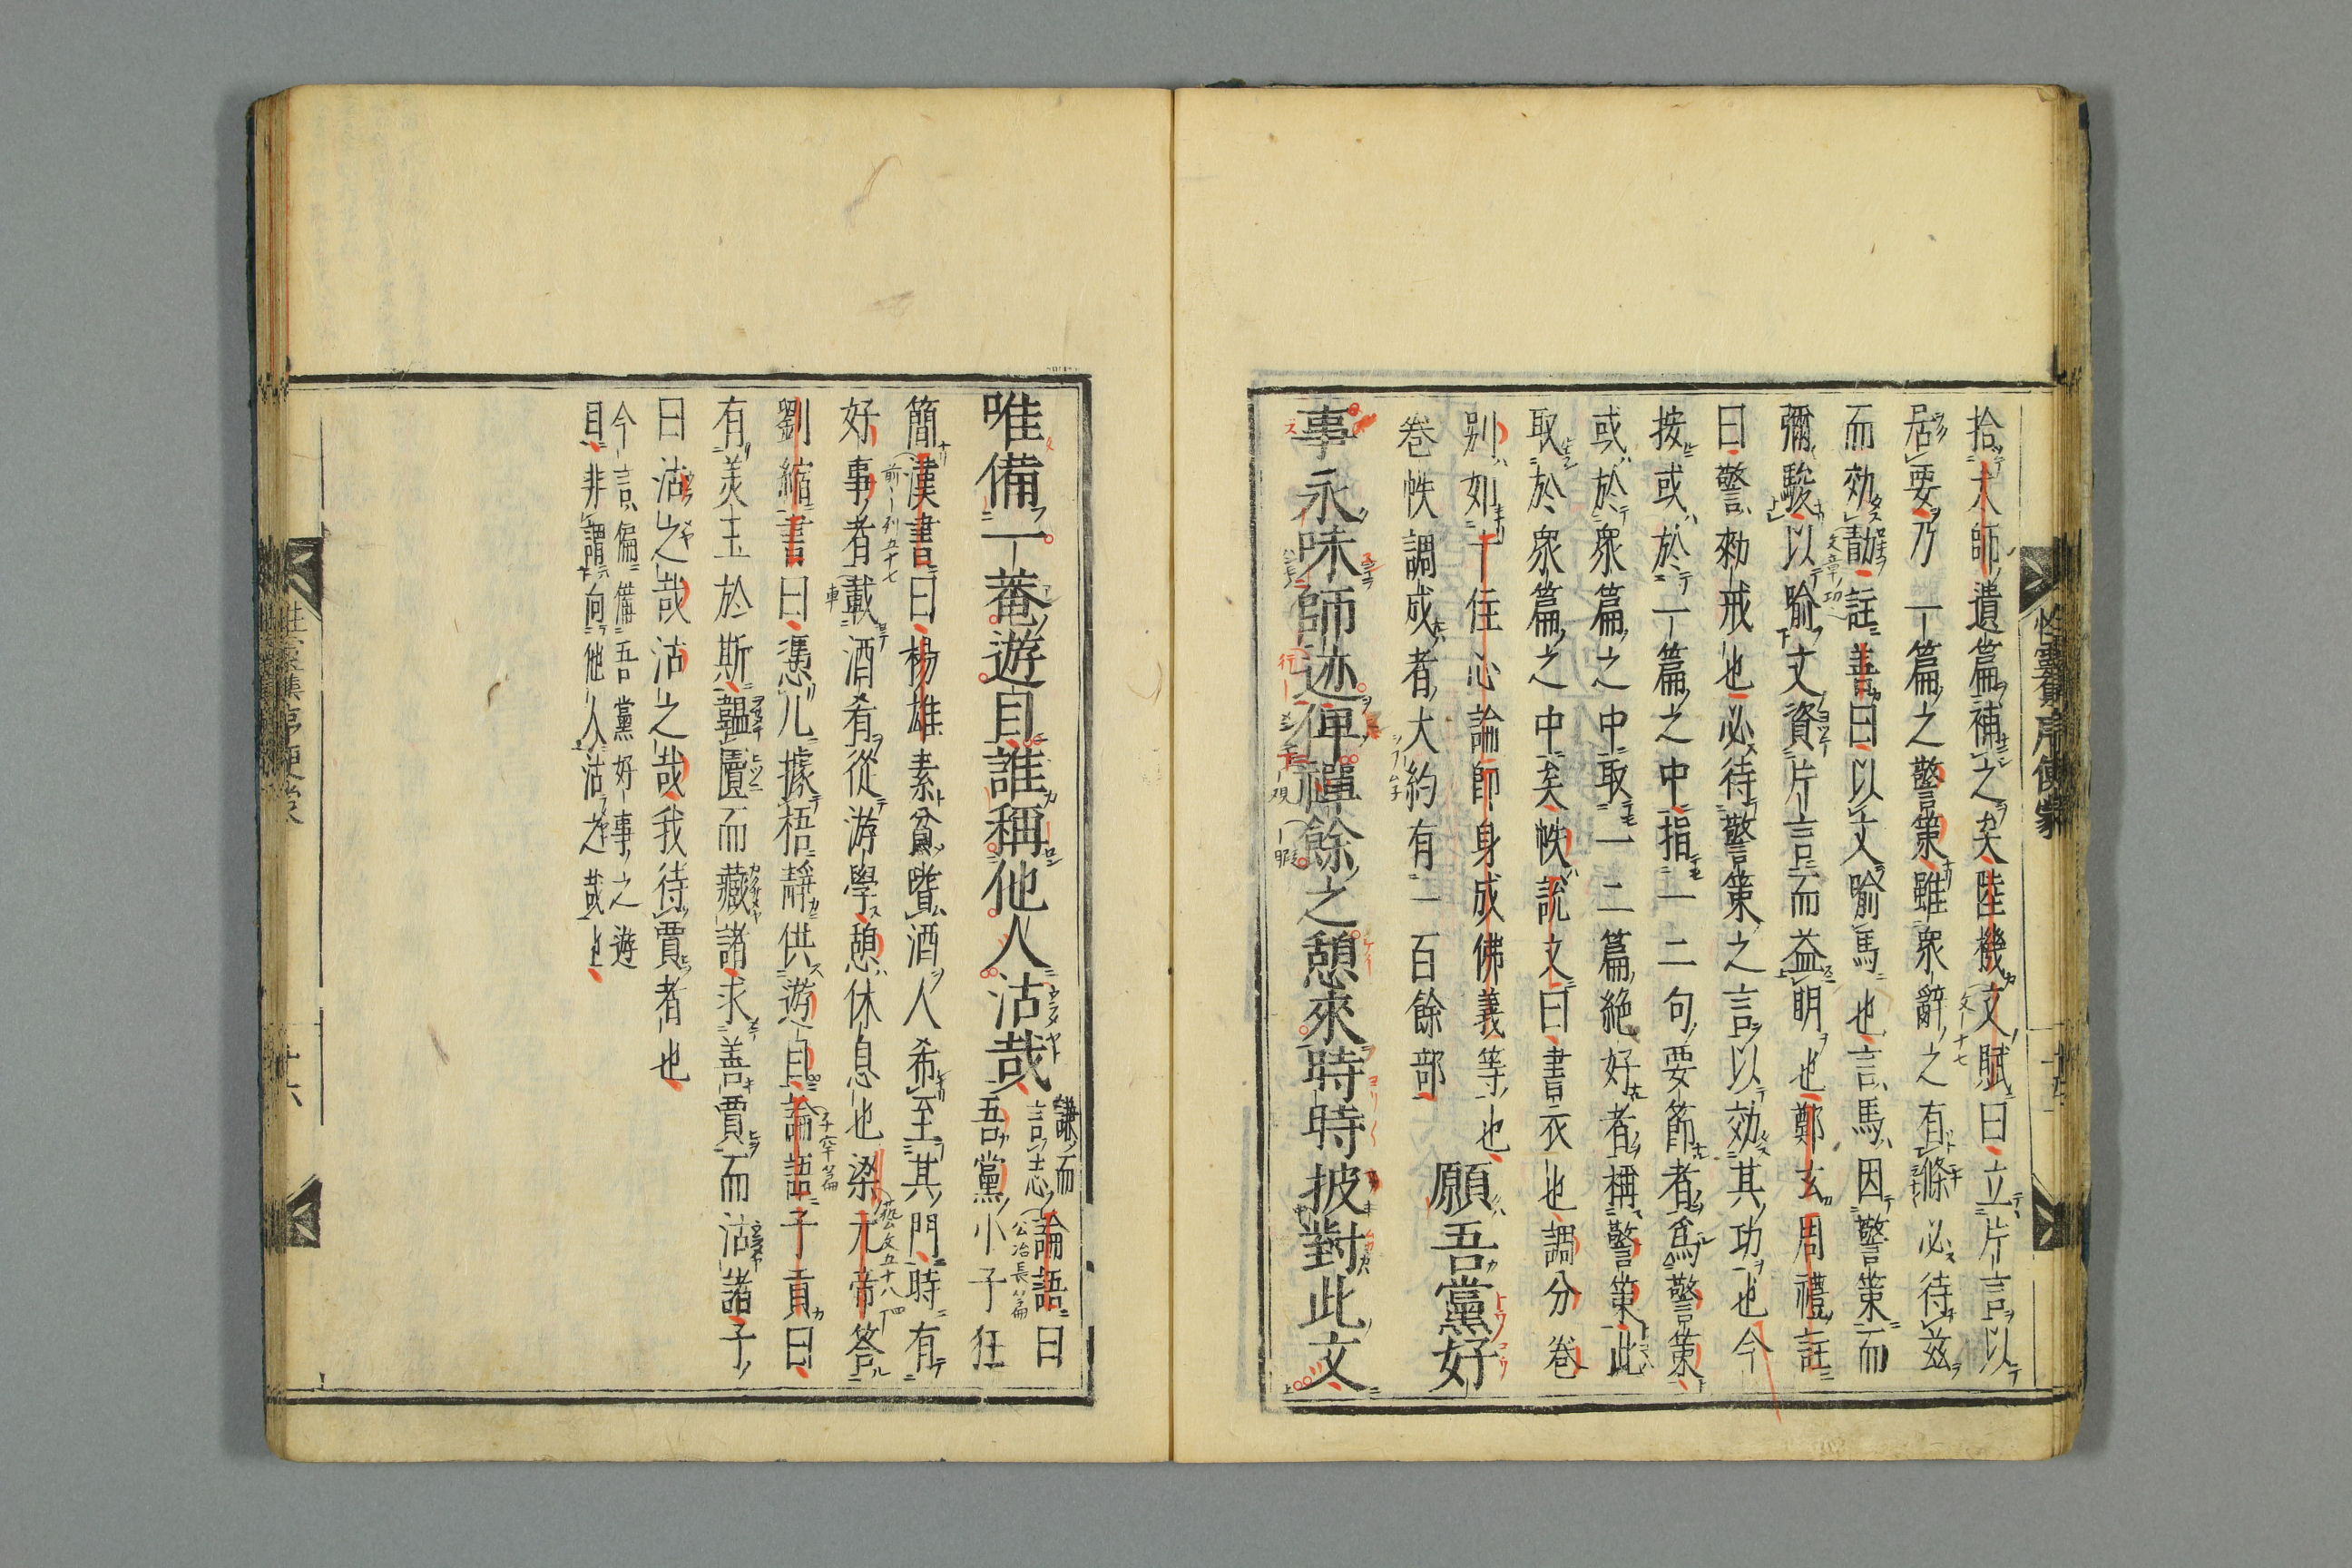 拾大師遺篇補之矣陸機文賦曰立片言以
居要乃一篇之警策雖衆辭之有條必待茲
而効勣註善曰以文喩馬也言馬因警策而
彌駿以喩文資片言而益明也鄭玄周禮註
曰警勑戒也必待警策之言以効其功也今
按或於一篇之中指一二句要節者爲警策
或於衆篇之中取一二篇絶好者稱警策此
取於衆篇之中矣帙説文曰書衣也調分卷
別如十住心論師身成佛義等也
卷帙調成者大約有一百餘部
願吾黨好
事永味師迹俾禪餘之憩來時時披對此文
唯備一菴遊目誰稱他人沽哉
謙而
言志論語曰
吾黨小子狂
簡漢書曰楊雄素貧嗜酒人希至其門時有
好事者載酒肴從游學憩休息也梁元帝答
劉縮書曰憑几據梧靜供遊目論語子貢曰
有美玉於斯韞匵而藏諸求善賈而沽諸子
曰沽之哉沽之哉我待賈者也
今言偏備吾黨好事之遊
目非謂向他人沽之哉也